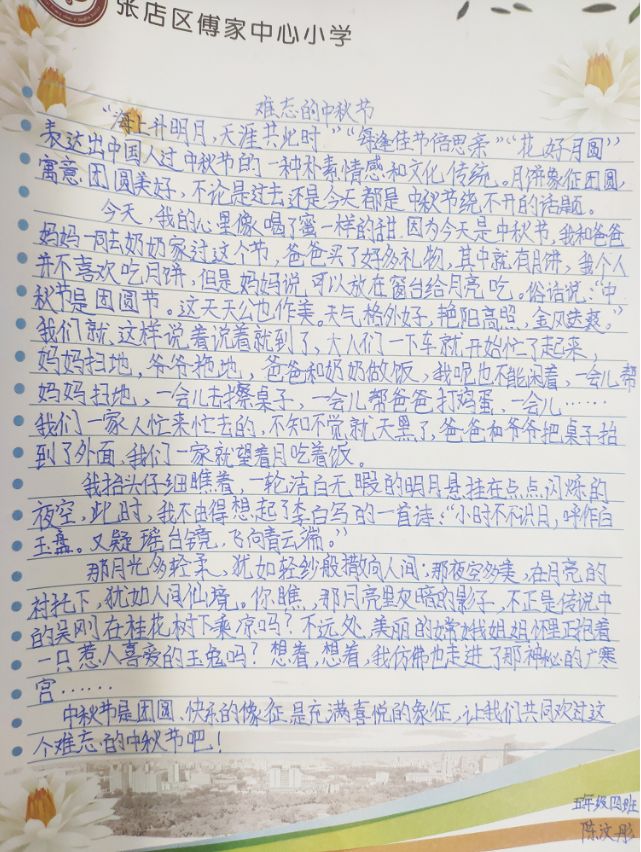 张店区傅家中心小学
难忘的中秋节
“海上升明月，天涯共此时”“每逢佳节倍思亲”“花好月圆”
表达出中国人过中秋节的一种朴素情感和文化传统。月饼象征团圆，
寓意团圆美好，不论是过去还是今天都是中秋节绕不开的话题。
今天，我的心里像喝了蜜一样的甜，因为今天是中秋节，我和爸爸
妈妈一同去奶奶家过这个节，爸爸买了好多礼物，其中就有月饼，我个人
并不喜欢吃月饼，但是妈妈说可以放在窗台给月亮吃。俗话说：“中
秋节是团圆节。这天天公也作美。天气格外好，艳阳高照，金风送爽。”
我们就这样说着说着就到了，大人们一下车就开始忙了起来，
妈妈扫地，爷爷拖地，爸爸和奶奶做饭，我呢也不能闲着，一会儿帮
妈妈扫地，一会儿去擦桌子，一会儿帮爸爸打鸡蛋，一会儿……
我们一家人忙来忙去的，不知不觉就天黑了，爸爸和爷爷把桌子抬
到了外面，我们一家就望着月吃着饭。
我抬头仔细瞧着，一轮洁白无暇的明月悬挂在点点闪烁的
夜空，此时，我不由得想起了李白写的一首诗：“小时不识月，呼作白
玉盘。又疑瑶台镜，飞向青云端。”
那月光多轻柔，犹如轻纱般撒向人间；那夜空多美，在月亮的
衬托下，犹如人间仙境。你瞧，那月亮里灰暗的影子，不正是传说中
的吴刚在桂花树下乘凉吗？不远处，美丽的嫦娥姐姐怀里正抱着
一只惹人喜爱的玉兔吗？想着，想着，我仿佛也走进了那神秘的广寒
宫……
中秋节是团圆、快乐的像征，是充满喜悦的象征，让我们共同欢过这
个难忘的中秋节吧！
五年级四班
陈汶彤